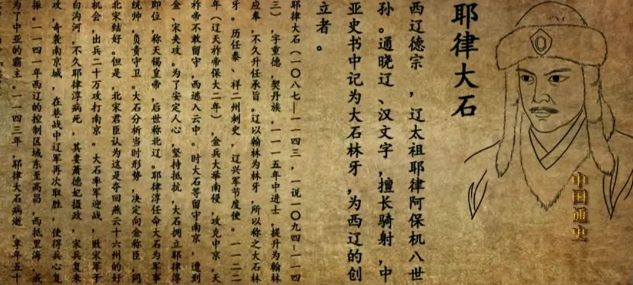 耶律大石
西辽德宗，辽太祖耶律阿保机八世
孙。通晓辽、汉文字，擅长骑射，中
亚史书中记为大石林牙，为西辽的创
立者。
耶律大石（一〇八七—一一四三，一说一〇九四—一一四
三）字重德，契丹族，一一一五年中进士，提升为翰林
应奉，不久升任承旨，辽以翰林为林牙，所以称之大石林
牙。历任泰、祥二州刺史，辽兴军节度使。一一二二
年（辽天祚帝保大二年），金兵大举南侵，攻克中京，天
祚帝不敢留守，西逃入云中。时大石等留守南京，遭到
金、宋夹攻。为了安定人心，坚持抵抗，大石拥立耶律淳
即位，称天锡皇帝，后世称北辽。耶律淳任命大石为军事
统帅，负责守卫。大石分析当时形势，决定向金称臣，同
北宋结好。但是，北宋君臣认为这是夺回燕云十六州的好
机会，出兵二十万攻打南京。大石率军迎战，败宋军于
白沟河。不久耶律淳病死，其妻萧德妃摄政，宋兵复来
攻，奇袭南京城，在巷战中辽军再次取胜，使得兵心复
振。一一四一年西辽的控制区域东至高昌，西抵里海，成
为了中亚的霸主。一一四三年，耶律大石病逝，享年五十
中国通史